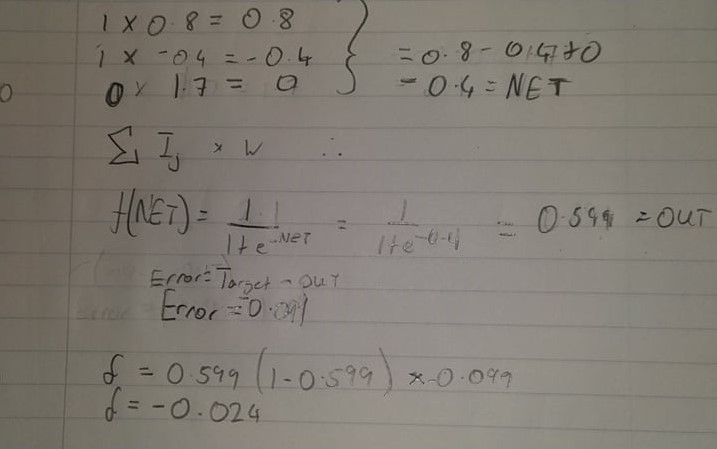 1 x 0.8 = 0.8
1 x -0.4 = -0.4 } = 0.8 - 0.4 + 0
0 x 1.7 = 0 = 0.4 = NET
0
∑ Ij x W ∴
f(NET) = 1 / 1+e^-NET = 1 / 1+e^-0.4 = 0.599 = OUT
Error = Target - OUT
Error = -0.099
δ = 0.599 (1 - 0.599) x -0.099
δ = -0.024